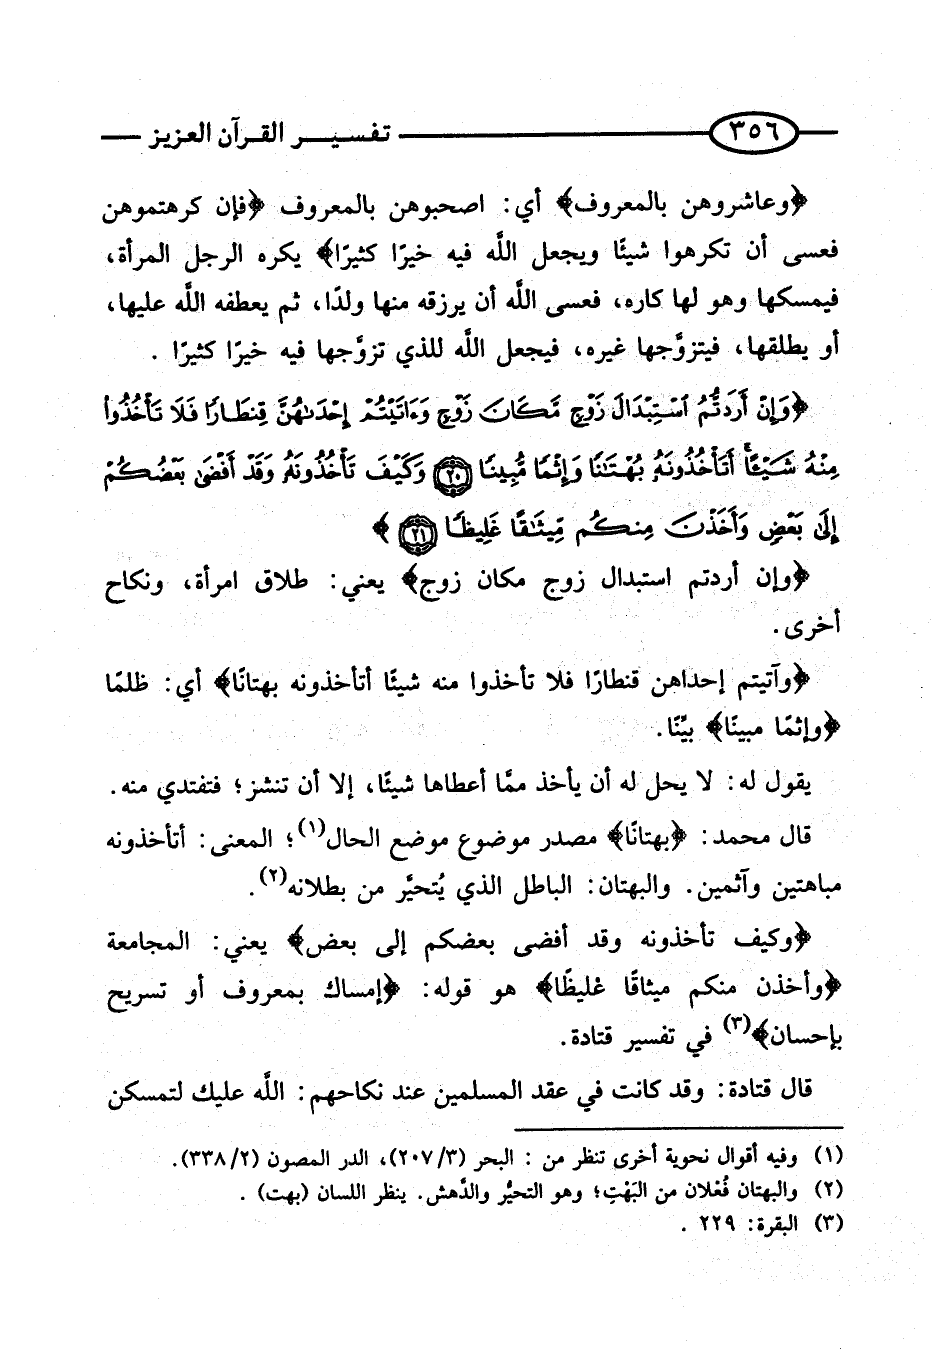 ٣٥٦ تفسير القرآن العزيز
﴿وعاشروهن بالمعروف﴾ أي: اصحبوهن بالمعروف ﴿فإن كرهتموهن
فعسى أن تكرهوا شيئًا ويجعل اللَّه فيه خيرًا كثيرًا﴾ يكره الرجل المرأة،
فيمسكها وهو لها كاره، فعسى اللَّه أن يرزقه منها ولدًا، ثم يعطفه اللَّه عليها،
أو يطلقها، فيتزوَّجها غيره، فيجعل اللَّه للذي تزوَّجها فيه خيرًا كثيرًا .
﴿وَإِنْ أَرَدتُّمُ ٱسْتِبْدَالَ زَوْجٍ مَّكَانَ زَوْجٍ وَءَاتَيْتُمْ إِحْدَىٰهُنَّ قِنطَارًا فَلَا تَأْخُذُوا۟
مِنْهُ شَيْـًٔا أَتَأْخُذُونَهُۥ بُهْتَٰنًا وَإِثْمًا مُّبِينًا ﴿٢٠﴾ وَكَيْفَ تَأْخُذُونَهُۥ وَقَدْ أَفْضَىٰ بَعْضُكُمْ
إِلَىٰ بَعْضٍ وَأَخَذْنَ مِنكُم مِّيثَٰقًا غَلِيظًا ﴿٢١﴾ ﴾
﴿وإن أردتم استبدال زوج مكان زوج﴾ يعني: طلاق امرأة، ونكاح
أخرى.
﴿وآتيتم إحداهن قنطارًا فلا تأخذوا منه شيئًا أتأخذونه بهتانًا﴾ أي: ظلمًا
﴿وإثمًا مبينًا﴾ بيِّنًا.
يقول له: لا يحل له أن يأخذ ممَّا أعطاها شيئًا، إلا أن تنشز؛ فتفتدي منه.
قال محمد: ﴿بهتانًا﴾ مصدر موضوع موضع الحال(١)؛ المعنى: أتأخذونه
مباهتين وآثمين. والبهتان: الباطل الذي يُتحيَّر من بطلانه(٢).
﴿وكيف تأخذونه وقد أفضى بعضكم إلى بعض﴾ يعني: المجامعة
﴿وأخذن منكم ميثاقًا غليظًا﴾ هو قوله: ﴿إمساك بمعروف أو تسريح
بإحسان﴾(٣) في تفسير قتادة.
قال قتادة: وقد كانت في عقد المسلمين عند نكاحهم: اللَّه عليك لتمسكن
(١) وفيه أقوال نحوية أخرى تنظر من : البحر (٢٠٧/٣)، الدر المصون (٣٣٨/٢).
(٢) والبهتان فُعْلان من البَهْتِ؛ وهو التحيُّر والدَّهش. ينظر اللسان (بهت) .
(٣) البقرة: ٢٢٩ .